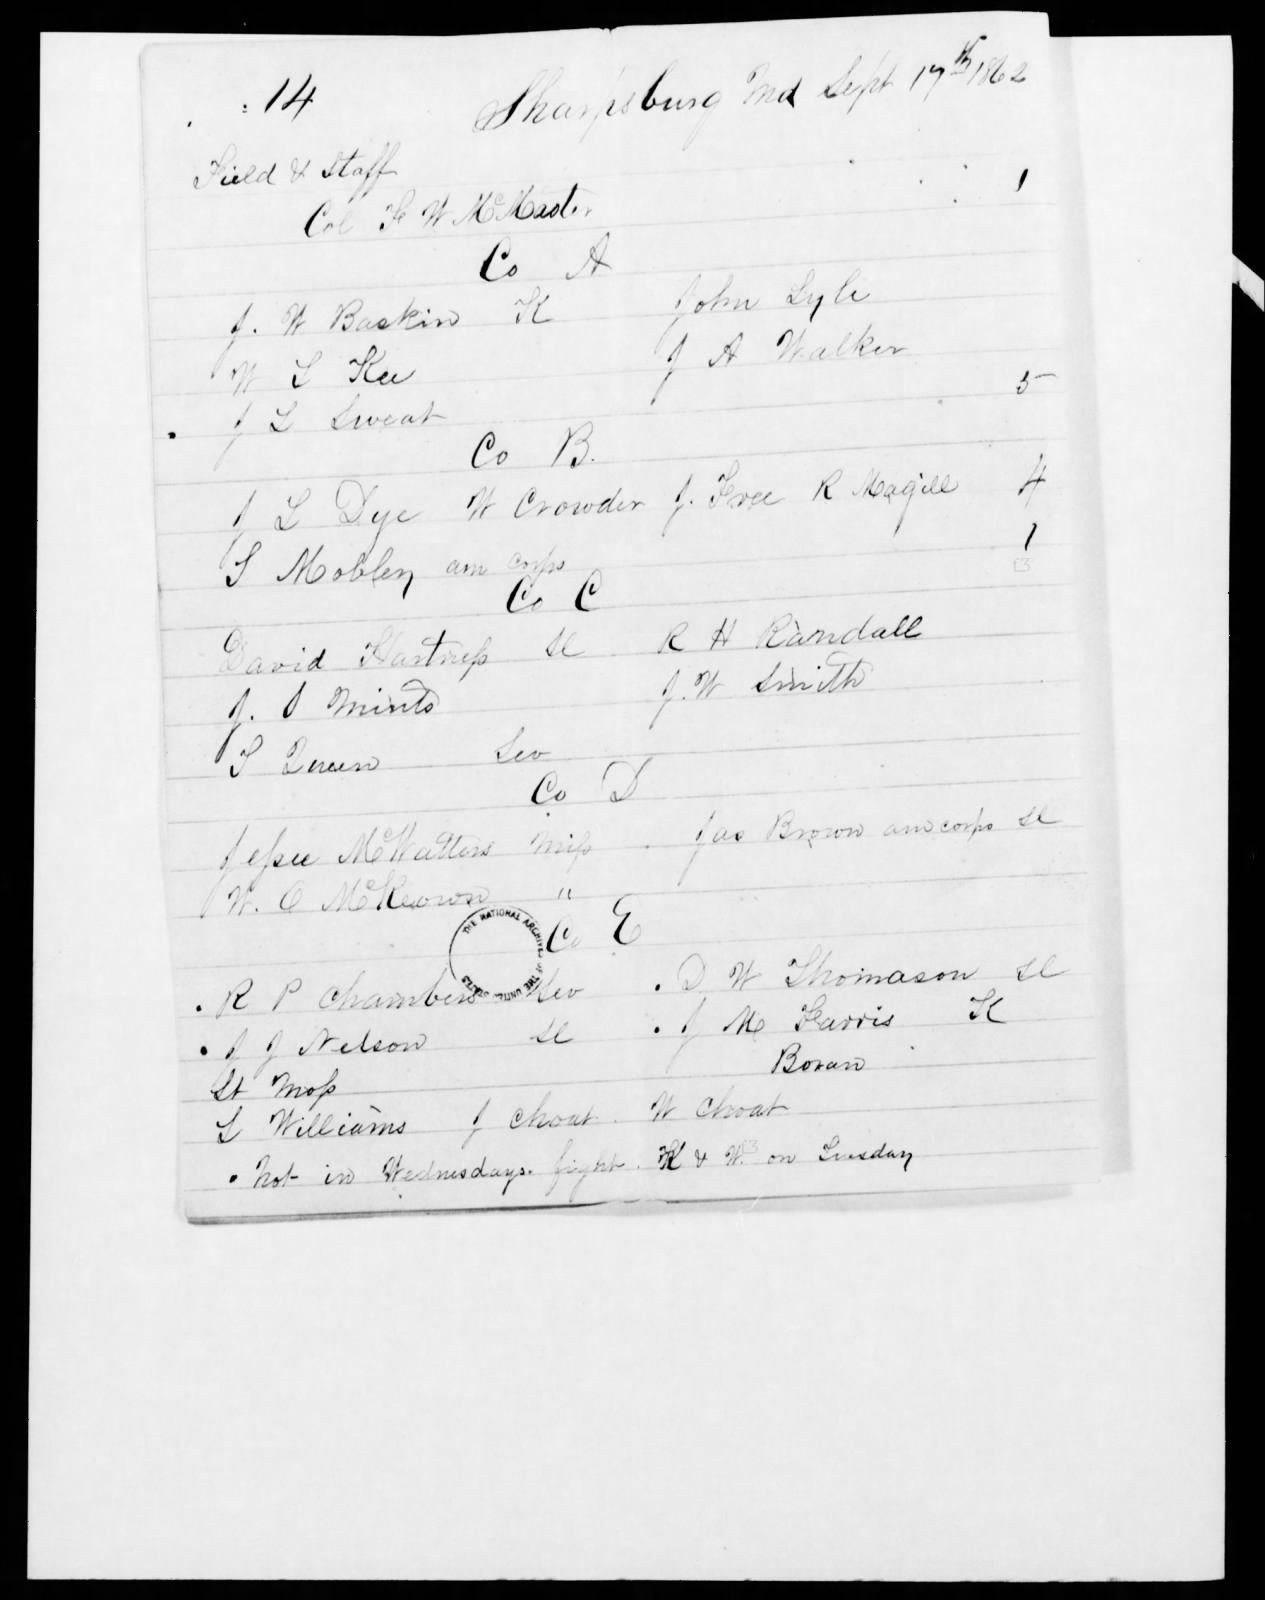 : 14 Sharpsburg Md Sept 17th 1862
Field & Staff
Col F W McMaster 1
Co A
J. W Baskin K John Lyle
W L Kee J A Walker
J L Sweat 5
Co B.
J L Dye W Crowder J. Free R Magill 4
S Mobley am corps 1
Co C
David Hartness Sl R H Randall
J. S Mints J. W Smith
S Queen Sev
Co D
Jessee McWatters Miss Jas Brown am corps Sl
W. C McKeown "
Co E
. R P Chambers Sev . D W Thomason Sl
. J J Nelson Sl . J M Farris K
Lt Moss Boran
L Williams J Choat W Choat
. Not in Wednesdays fight. K & W. on Tuesday
THE NATIONAL ARCHIVES OF THE UNITED STATES